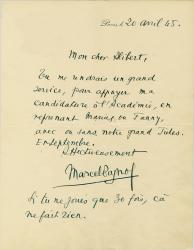 Paris le 20 avril 45.
Mon cher Hébert,
Tu me rendrais un grand
service, pour appuyer ma
candidature à l'Académie, en
reprenant Marius, ou Fanny,
avec ou sans notre grand Jules.
En Septembre.
Affectueusement
Marcel Pagnol
Si tu ne joues que 30 fois, ça
ne fait rien.